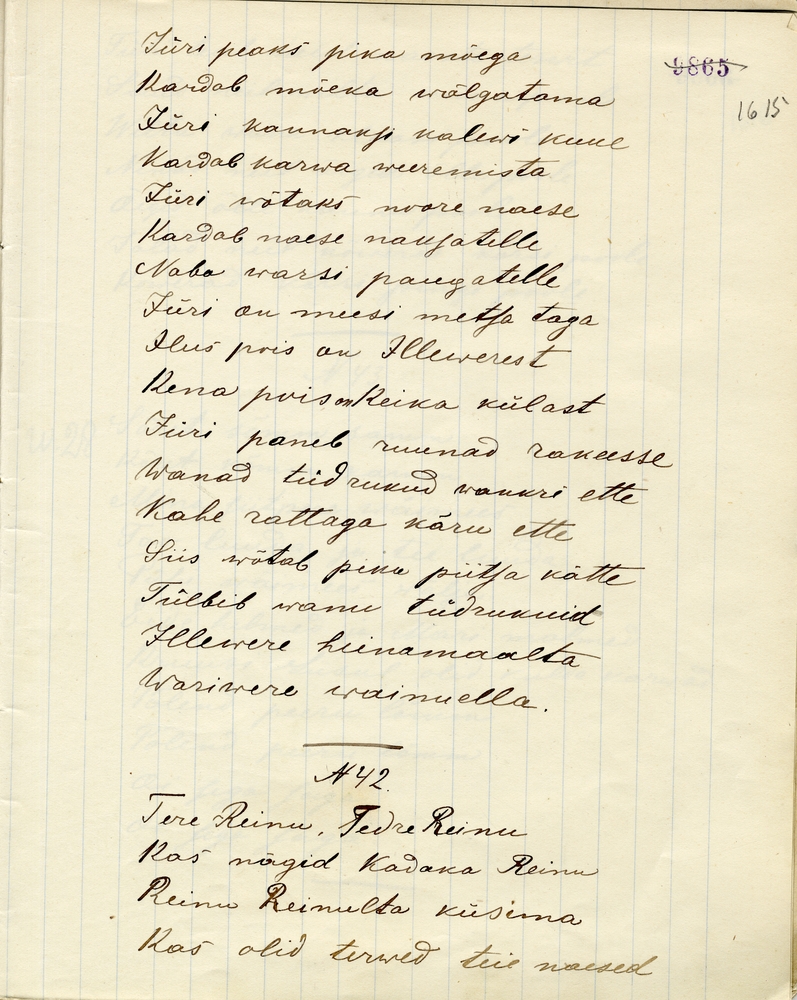 9865
1615
Jüri peaks pika mõega
Kardab mõeka wälgatama
Jüri kannaksi kalewi kuue
Kardab karwa weeremista
Jüri wõtaks noore naese
Kardab naese nauksatelle
Naba warsi paugatelle
Jüri on meesi metsa taga
Ilus pois on Illewerest
Kena pois on Keika külast
Jüri paneb ruunad rakeesse
Wanad tüdrukud wankri ette
Kahe rattaga käru ette
Siis wõtab pika piitsa kätte
Tülbib wanu tüdrukuid
Illewere heinamaalta
Wariwere wainuella.
N 42.
Tere Reinu, Tedre Reinu
Kas nägid Kadaka Reinu
Reinu Reinulta küsima
Kas olid terwed teie naesed